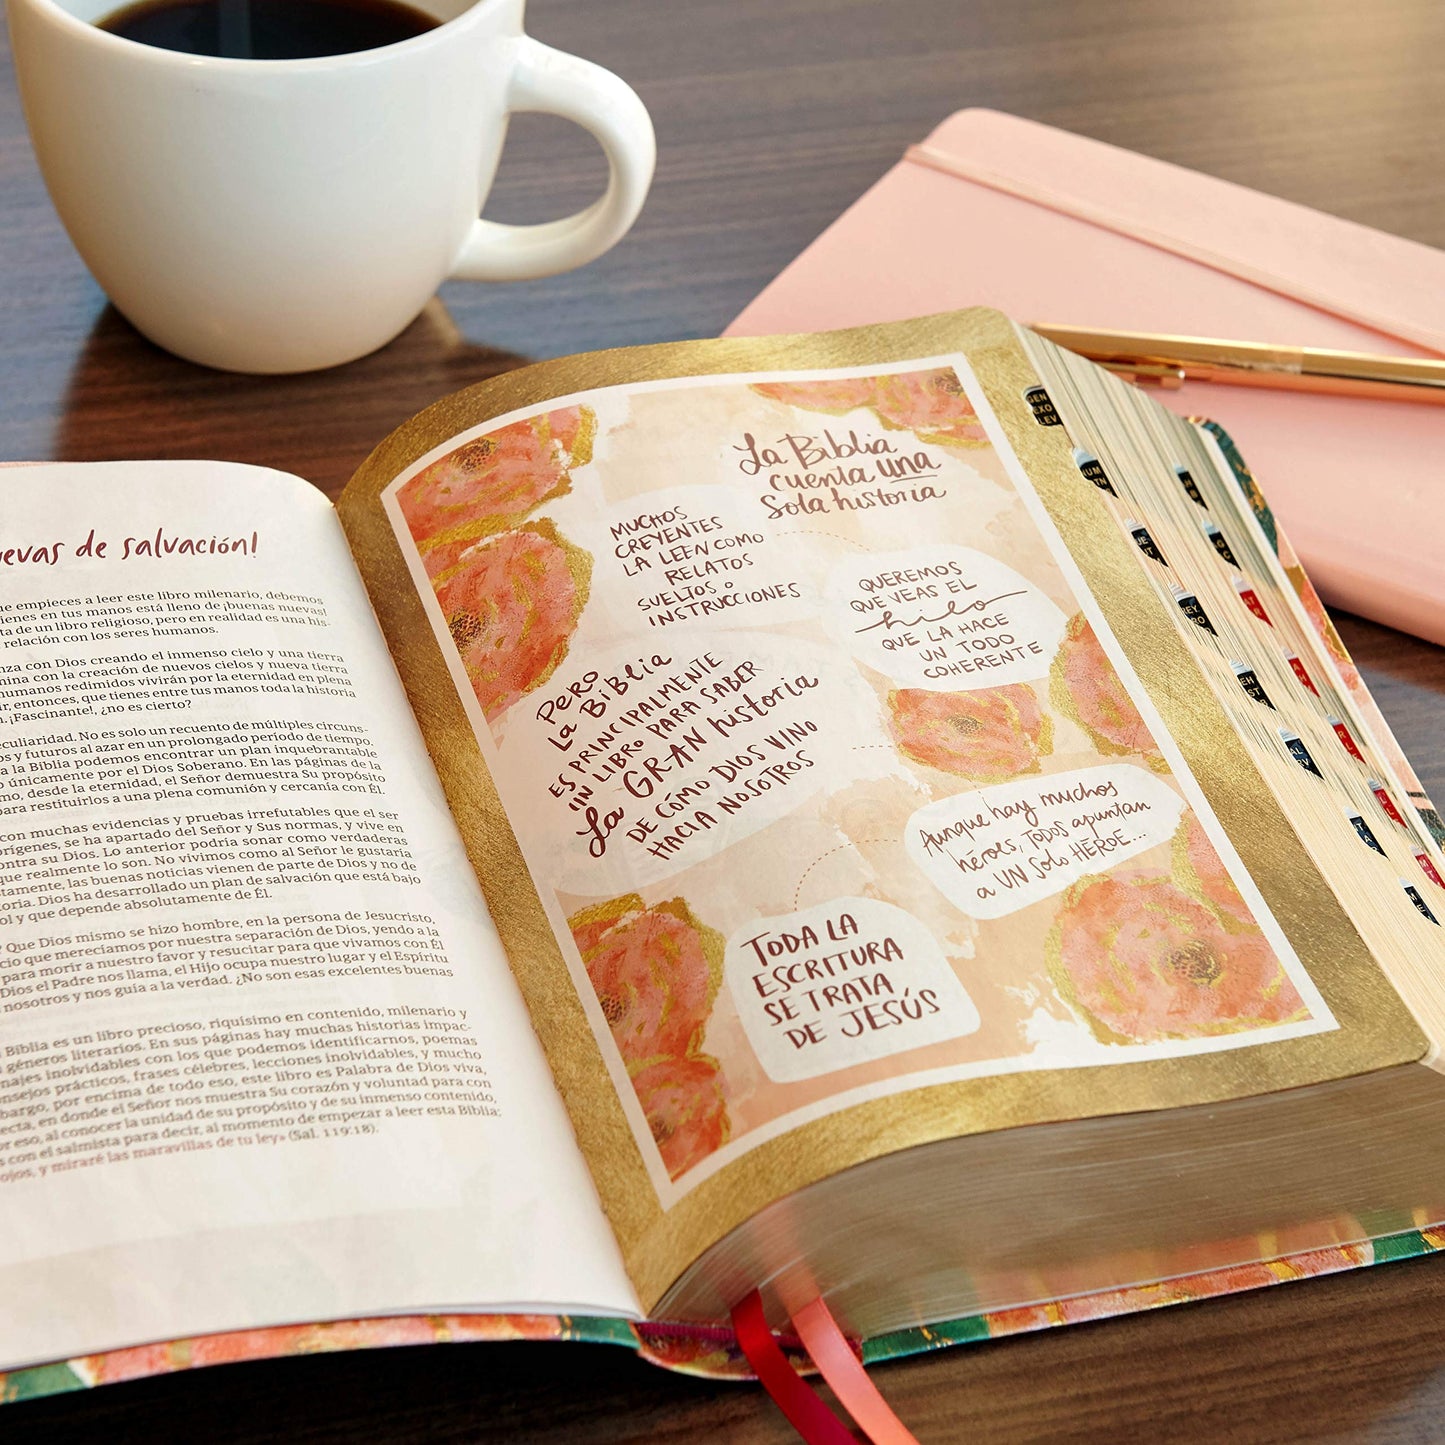 de salvación!
empieces a leer este libro milenario, debemos
ienes en tus manos está lleno de ¡buenas nuevas!
ta de un libro religioso, pero en realidad es una his-
relación con los seres humanos.
nza con Dios creando el inmenso cielo y una tierra
mina con la creación de nuevos cielos y nueva tierra
humanos redimidos vivirán por la eternidad en plena
ir, entonces, que tienes entre tus manos toda la historia
n. ¡Fascinante!, ¿no es cierto?
eculiaridad. No es solo un recuento de múltiples circuns-
os y futuros al azar en un prolongado período de tiempo.
a la Biblia podemos encontrar un plan inquebrantable
o únicamente por el Dios Soberano. En las páginas de la
mo, desde la eternidad, el Señor demuestra Su propósito
para restituirlos a una plena comunión y cercanía con Él.
con muchas evidencias y pruebas irrefutables que el ser
orígenes, se ha apartado del Señor y Sus normas, y vive en
ontra su Dios. Lo anterior podría sonar como verdaderas
que realmente lo son. No vivimos como al Señor le gustaría
stamente, las buenas noticias vienen de parte de Dios y no de
toria. Dios ha desarrollado un plan de salvación que está bajo
ol y que depende absolutamente de Él.
? Que Dios mismo se hizo hombre, en la persona de Jesucristo,
cio que merecíamos por nuestra separación de Dios, yendo a la
para morir a nuestro favor y resucitar para que vivamos con Él
Dios el Padre nos llama, el Hijo ocupa nuestro lugar y el Espíritu
nosotros y nos guía a la verdad. ¿No son esas excelentes buenas
Biblia es un libro precioso, riquísimo en contenido, milenario y
géneros literarios. En sus páginas hay muchas historias impac-
najes inolvidables con los que podemos identificarnos, poemas
nsejos prácticos, frases célebres, lecciones inolvidables, y mucho
bargo, por encima de todo eso, este libro es Palabra de Dios viva,
ecta, en donde el Señor nos muestra Su corazón y voluntad para con
or eso, al conocer la unidad de su propósito y de su inmenso contenido,
s con el salmista para decir, al momento de empezar a leer esta Biblia:
ojos, y miraré las maravillas de tu ley» (Sal. 119:18).
La Biblia
cuenta una
Sola historia
MUCHOS
CREYENTES
LA LEEN COMO
RELATOS
SUELTOS o
INSTRUCCIONES
QUEREMOS
QUE VEAS EL
hilo
QUE LA HACE
UN TODO
COHERENTE
PERO
La BiBLia
ES PRINCIPALMENTE
UN LIBRO PARA SABER
La GRAN historia
DE CÓMO DIOS VINO
HACIA NOSOTROS
Aunque hay muchos
héroes, TODOS apuntan
a UN Solo HÉROE...
TODA LA
ESCRITURA
SE TRATA
DE JESÚS
GEN
EXO
LEV